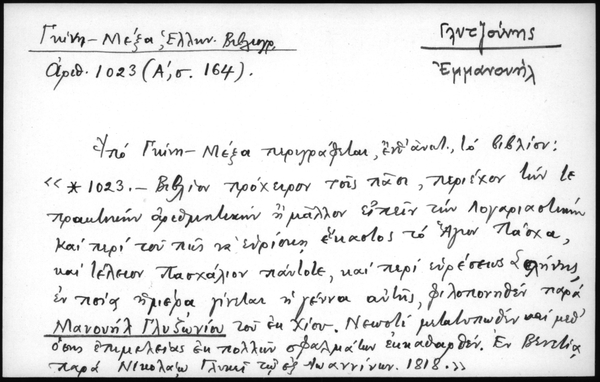 Γκίνη-Μέξα, Ἑλλην. Βιβλιογρ.
Γλυτζούνης
ἀριθ. 1023 (Α΄, σ. 164).
Ἐμμανουήλ
Ὑπό Γκίνη-Μέξα περιγράφεται, ἔνθ' ἀνωτ., τό βιβλίον:
« * 1023. - Βιβλίον πρόχειρον τοῖς πᾶσι, περιέχον τήν τε
πρακτικήν ἀριθμητικήν ἤ μᾶλλον εἰπεῖν τήν Λογαριαστικήν
καί περί τοῦ πῶς νά εὑρίσκῃ ἕκαστος τό Ἅγιον Πάσχα,
καί τέλειον Πασχάλιον πάντοτε, καί περί εὑρέσεως Σελήνης,
ἐν ποίᾳ ἡμέρᾳ γίνεται ἡ γέννα αὐτῆς, φιλοπονηθέν παρά
Μανουήλ Γλυζωνίου τοῦ ἐκ Χίου. Νεωστί μετατυπωθέν καί μεθ'
ὅσης ἐπιμελείας ἐκ πολλῶν σφαλμάτων ἐκκαθαρθέν. Ἐν Βενετίᾳ
παρά Νικολάῳ Γλυκεῖ τῷ ἐξ Ἰωαννίνων. 1818.»